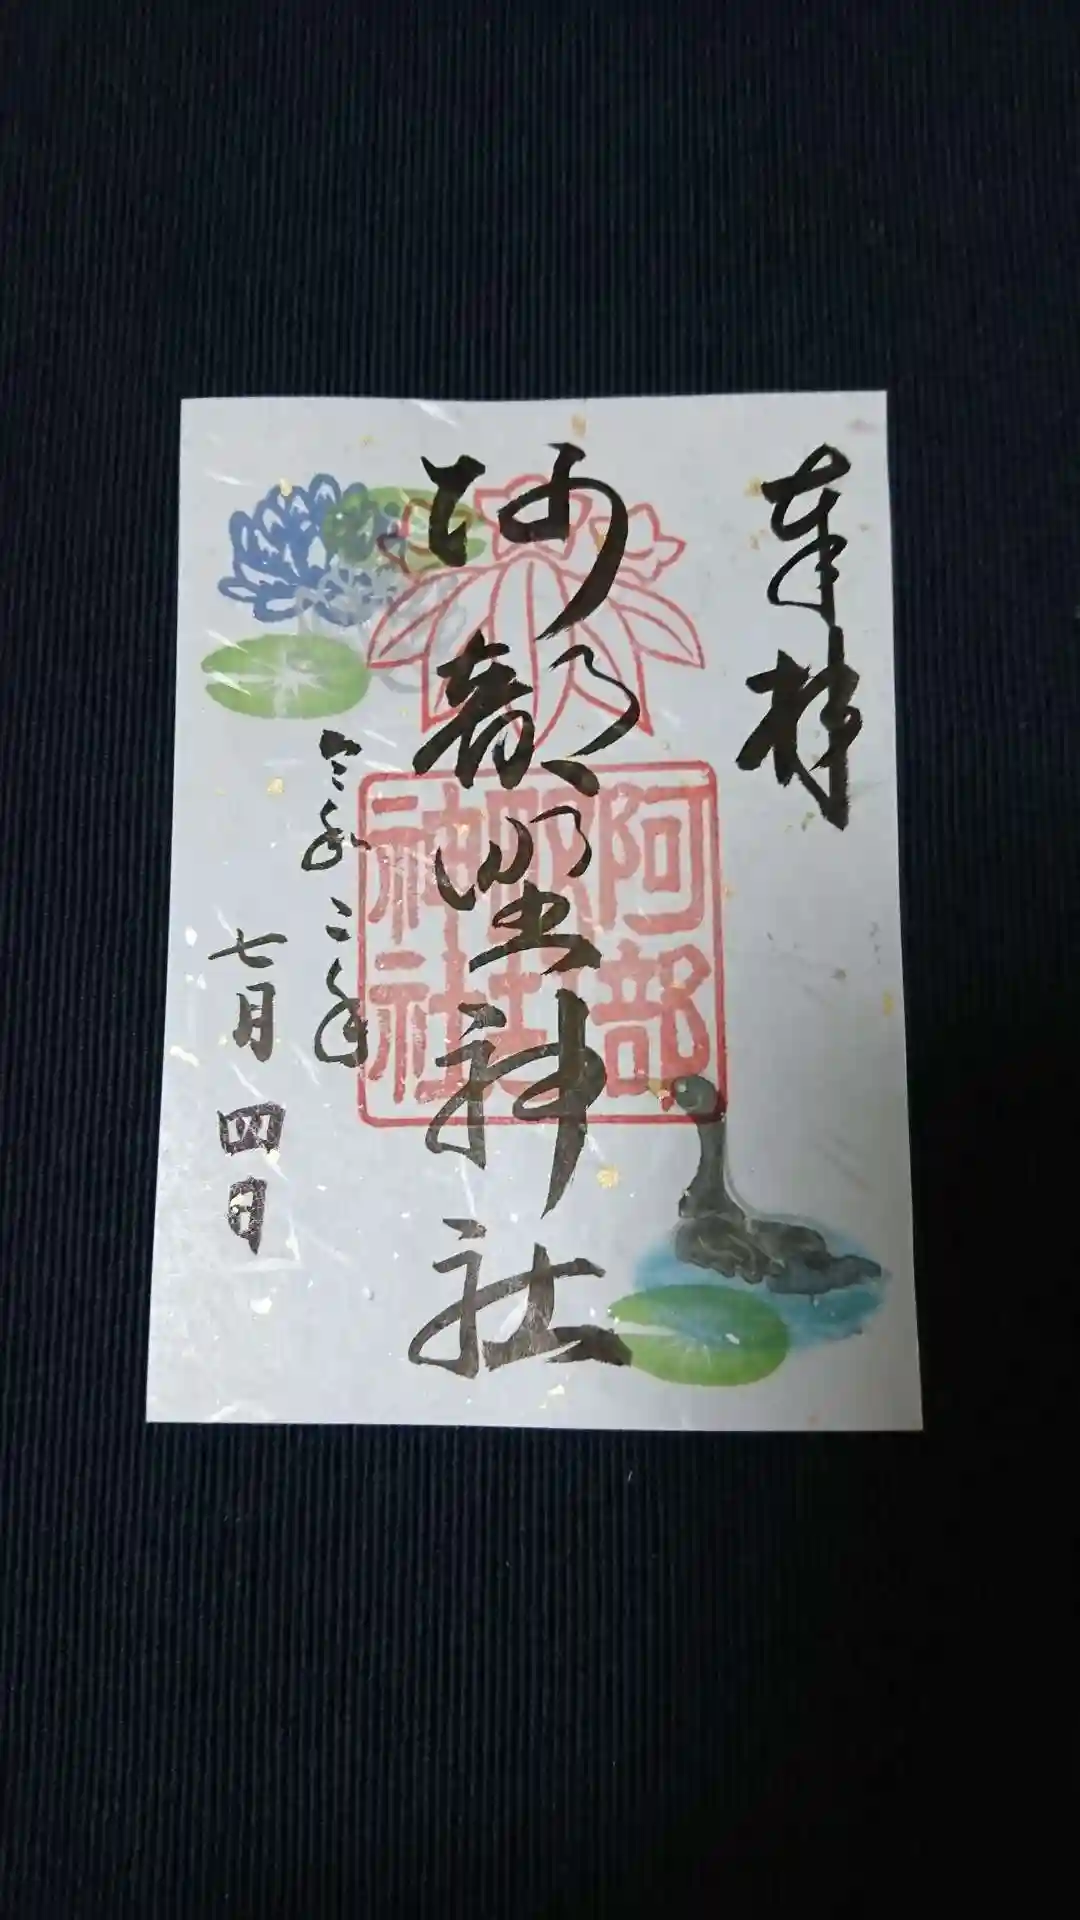 奉拝
阿部野神社
阿部
野
神社
令和二年
七月四日